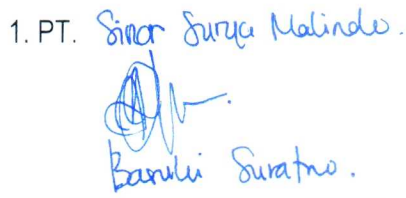 1. PT. Sinar Surya Malindo.
Basuki Suratno.